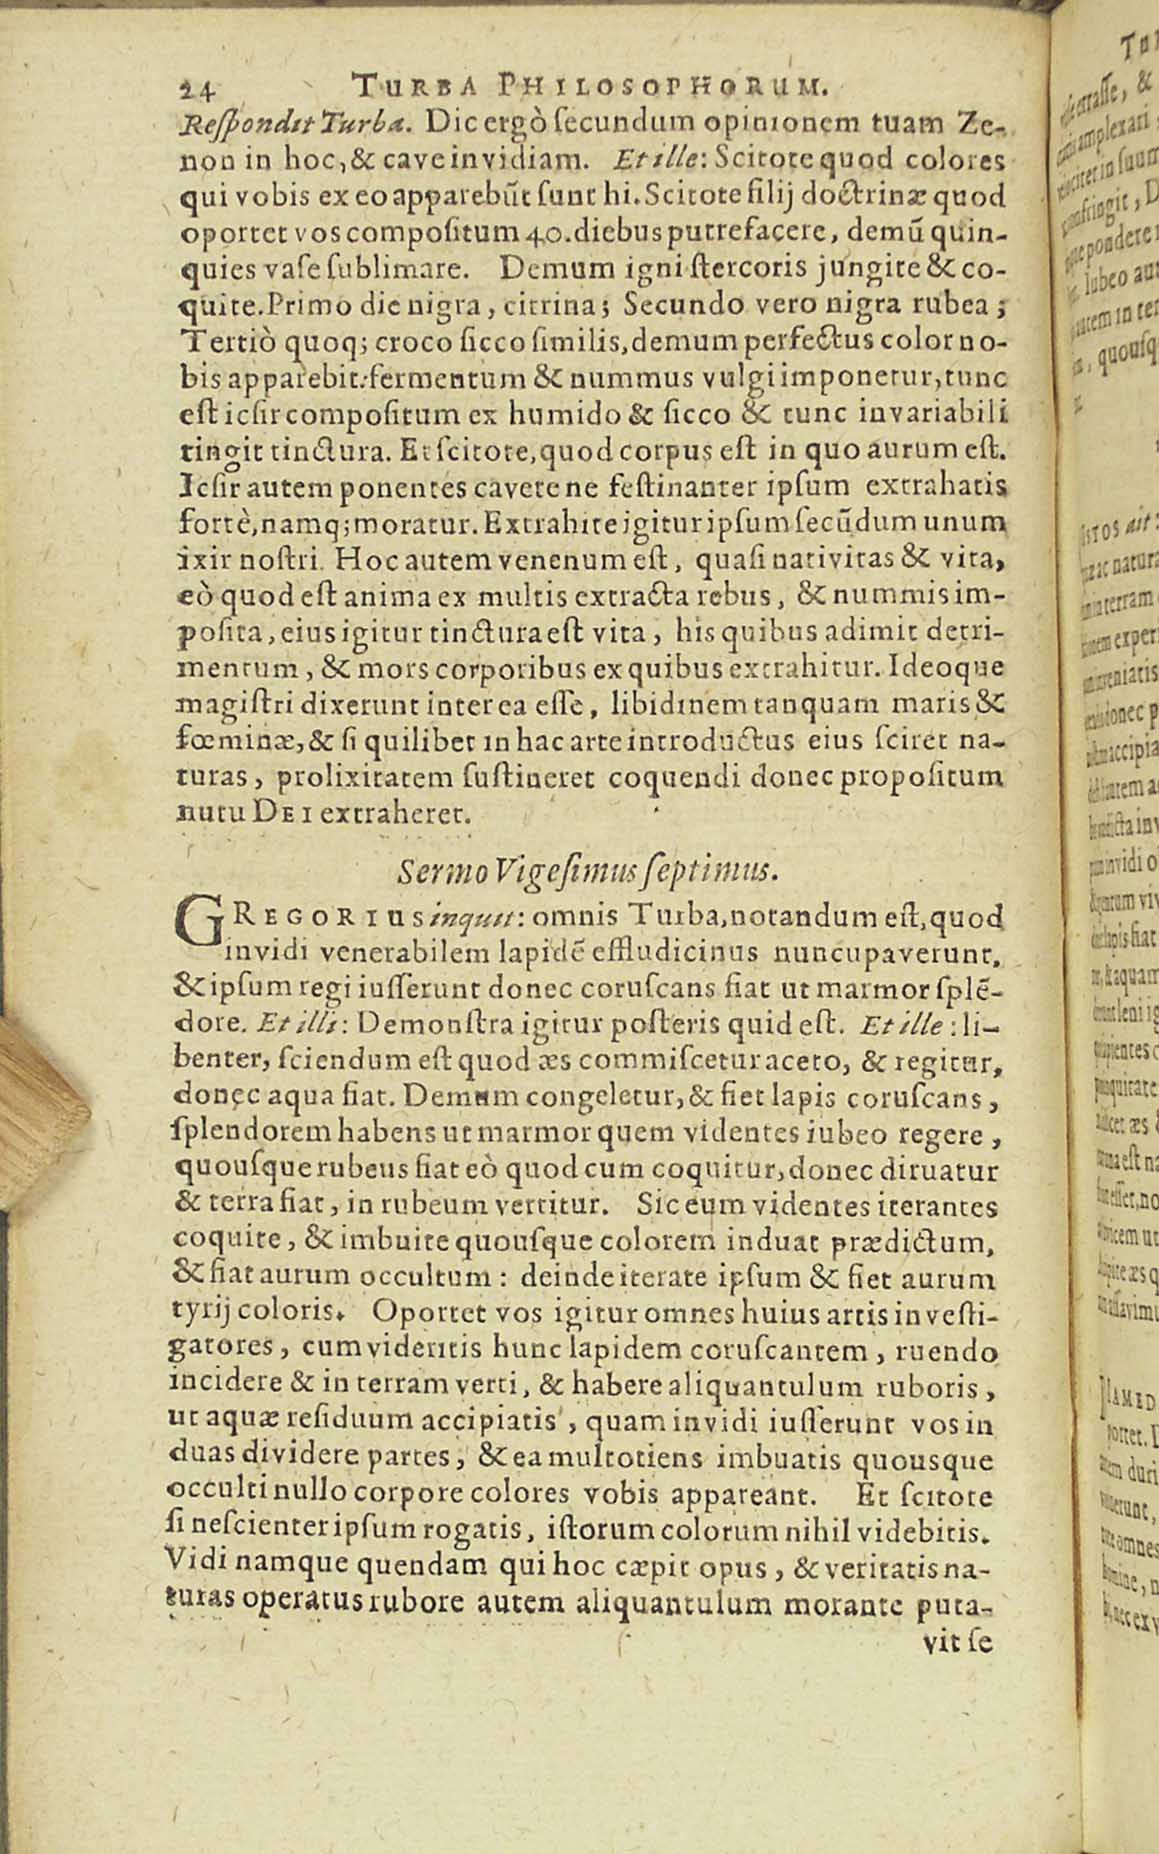 24 TURBA PHILOSOPHORUM.
Reſpondit Turba. Dic ergò ſecundum opinionem tuam Ze-
non in hoc, & cave invidiam. Et ille: Scitote quod colores
qui vobis ex eo apparebũt ſunt hi. Scitote filij doctrinæ quod
oportet vos compoſitum 40. diebus putrefacere, demũ quin-
quies vaſe ſublimare. Demum igni ſtercoris jungite & co-
quite. Primo die nigra, citrina; Secundo vero nigra rubea;
Tertiò quoq; croco ſicco ſimilis, demum perfectus color no-
bis apparebit: fermentum & nummus vulgi imponetur, tunc
eſt icſir compoſitum ex humido & ſicco & tunc invariabili
tingit tinctura. Et ſcitote, quod corpus eſt in quo aurum eſt.
Icſir autem ponentes cavete ne feſtinanter ipſum extrahatis
fortè, namq; moratur. Extrahite igitur ipſum ſecũdum unum
ixir noſtri. Hoc autem venenum eſt, quaſi nativitas & vita,
eò quod eſt anima ex multis extracta rebus, & nummis im-
poſita, eius igitur tinctura eſt vita, his quibus adimit detri-
mentum, & mors corporibus ex quibus extrahitur. Ideoque
magiſtri dixerunt inter ea eſſe, libidinem tanquam maris &
fœminæ, & ſi quilibet in hac arte introductus eius ſciret na-
turas, prolixitatem ſuſtineret coquendi donec propoſitum
nutu DEI extraheret.
Sermo Vigeſimus ſeptimus.
GREGORIUS inquit: omnis Turba, notandum eſt, quod
invidi venerabilem lapidẽ effludicinus nuncupaverunt,
& ipſum regi iuſſerunt donec coruſcans fiat ut marmor ſplẽ-
dore. Et illi: Demonſtra igitur poſteris quid eſt. Et ille: li-
benter, ſciendum eſt quod æs commiſcetur aceto, & regitur,
donec aqua fiat. Demum congeletur, & fiet lapis coruſcans,
ſplendorem habens ut marmor quem videntes iubeo regere,
quouſque rubeus fiat eò quod cum coquitur, donec diruatur
& terra fiat, in rubeum vertitur. Sic eum videntes iterantes
coquite, & imbuite quouſque colorem induat prædictum,
& fiat aurum occultum: deinde iterate ipſum & fiet aurum
tyrij coloris. Oportet vos igitur omnes huius artis inveſti-
gatores, cum videritis hunc lapidem coruſcantem, ruendo
incidere & in terram verti, & habere aliquantulum ruboris,
ut aquæ reſiduum accipiatis, quam invidi iuſſerunt vos in
duas dividere partes, & ea multotiens imbuatis quousque
occulti nullo corpore colores vobis appareant. Et ſcitote
ſi neſcienter ipſum rogatis, iſtorum colorum nihil videbitis.
Vidi namque quendam qui hoc cæpit opus, & veritatis na-
turas operatus rubore autem aliquantulum morante puta-
vit ſe